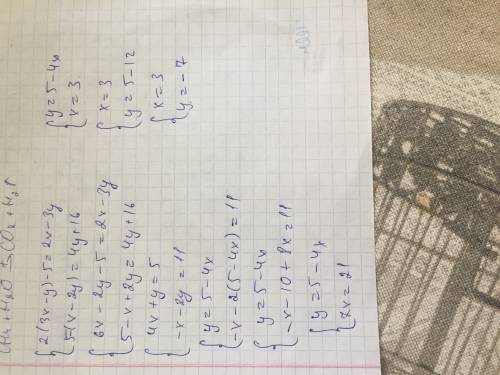 CH₄ + H₂O CO₂ + H₂
{ 2(3x-y)-5=2x-3y
5-(x-2y)=4y+16
{ 6x-2y-5=2x-3y
5-x+2y=4y+16
{ 4x+y=5
-x-2y=11
{ y=5-4x
-x-2(5-4x)=11
{ y=5-4x
-x-10+8x=11
{ y=5-4x
7x=21
{ y=5-4x
x=3
{ x=3
y=5-12
{ x=3
y=-7